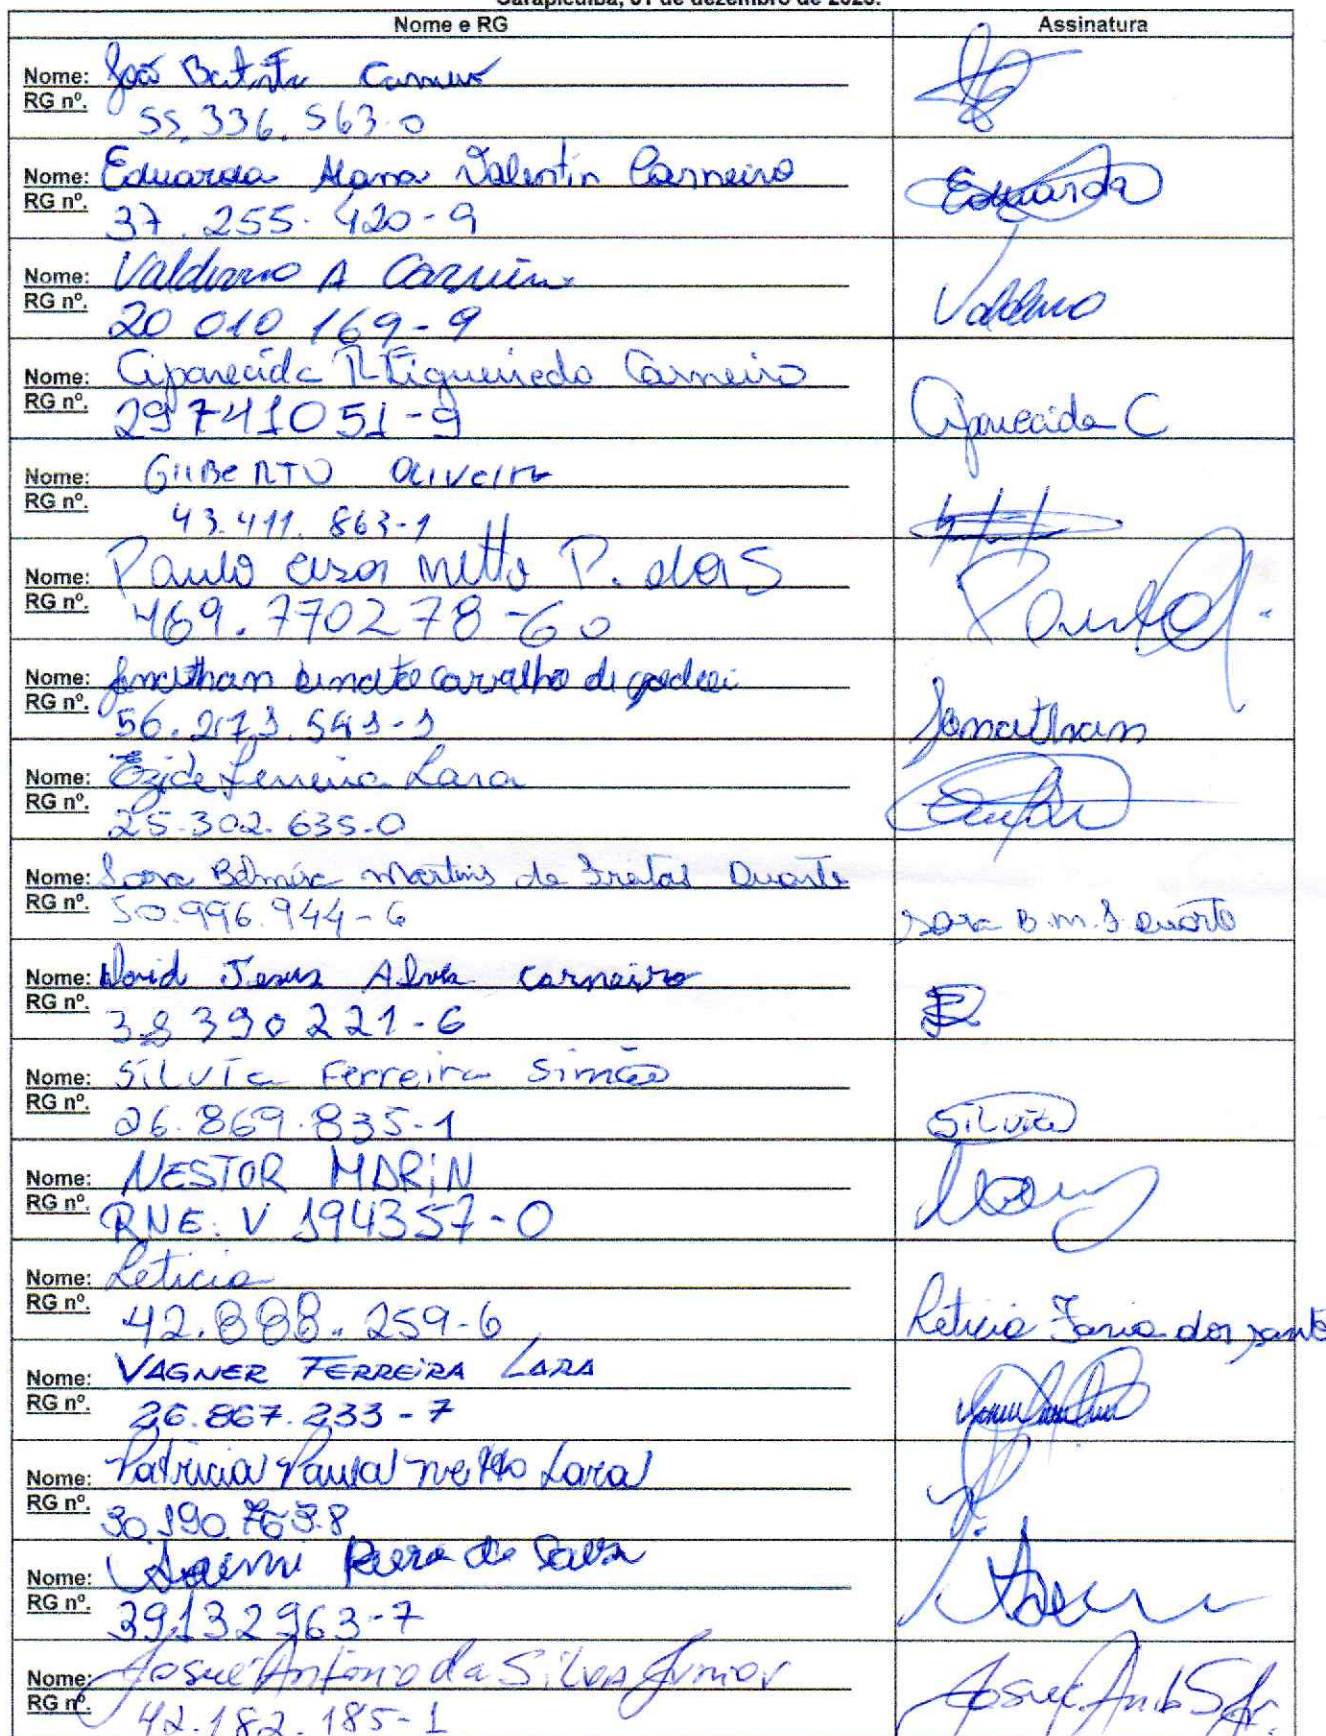 Carapicuíba, 01 de dezembro de 2023.
Nome e RG Assinatura
Nome: João Batista Carneiro
RG nº. 55.336.563-0
Nome: Eduarda Alana Valentin Carneiro Eduarda
RG nº. 37.255.420-9
Nome: Valdemo A Carneiro Valdemo
RG nº. 20 010 169-9
Nome: Aparecida R Figueiredo Carneiro
RG nº. 29741051-9 Aparecida C
Nome: GilBeRTO Oliveira
RG nº. 43.411.863-1
Nome: Paulo Cesar Netto P. dos S
RG nº. 469.770278-60 Paulo
Nome: Jonathan carvalho de
RG nº. Jonathan
Nome: Ferreira Lara
RG nº. 25.302.635-0
Nome: Sara Belmira Martins de Freitas Duarte
RG nº. 50.996.944-6 Sara B.M.F Duarte
Nome: David Jesus Alves Carneiro
RG nº. 38 390 221-6
Nome: Silvia Ferreira Simão
RG nº. 26.869.835-1 Silvia
Nome: NESTOR MARiN
RG nº. RNE: V 194357-0
Nome: Leticia
RG nº. 42.888.259-6 Leticia Faria dos santo
Nome: VAGNER FERREiRA LARA
RG nº. 26.867.233-7
Nome: Patricia Paula netto Lara
RG nº.
Nome: de
RG nº. 39132963-7
Nome: Josué Antonio da Silva Junior
RG nº. 42.182.185-1